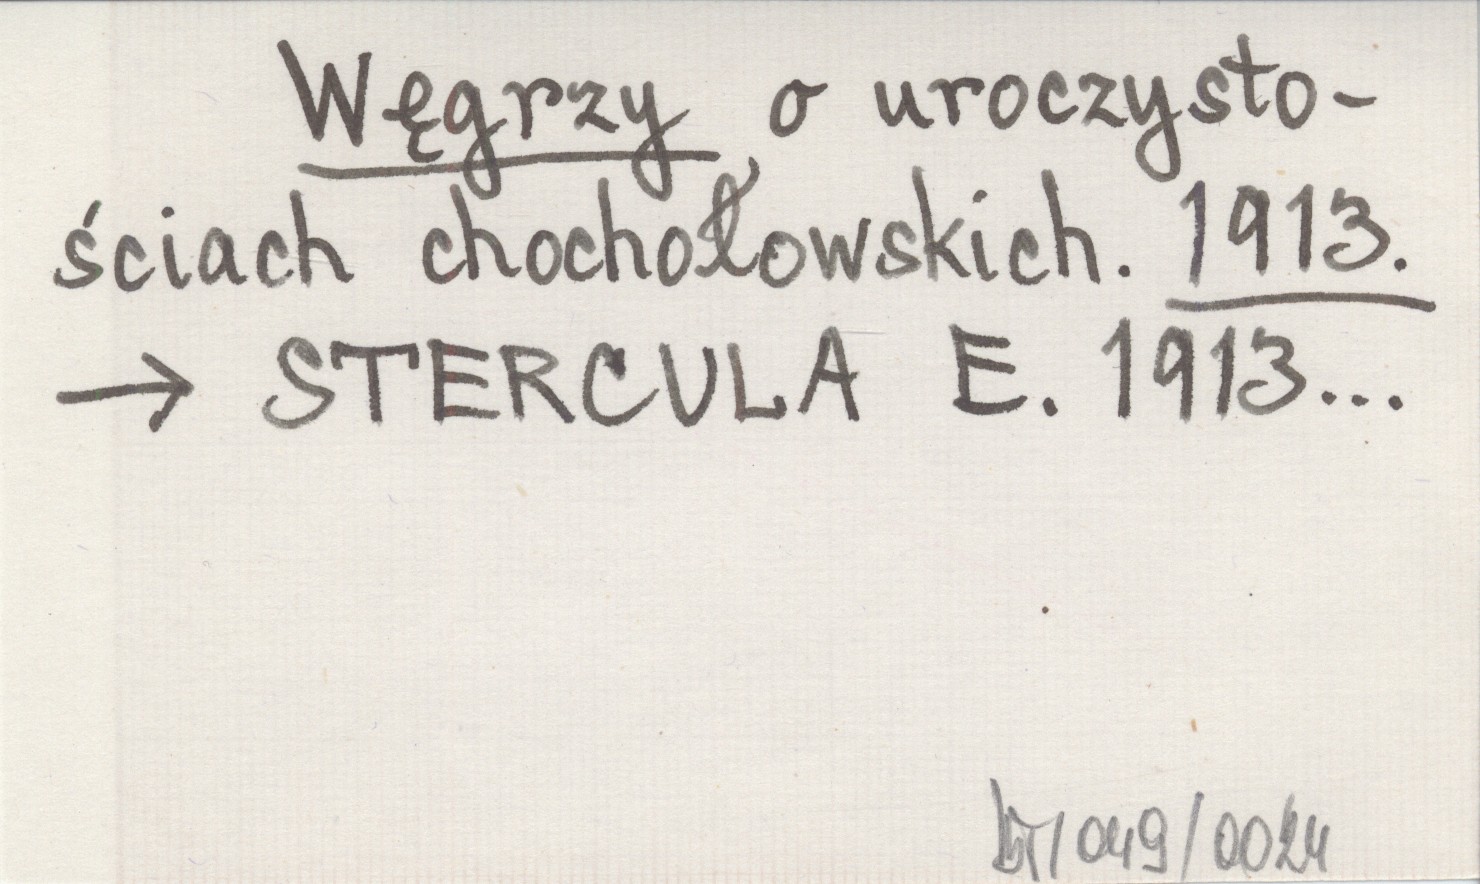 Węgrzy o uroczysto-
ściach chochołowskich. 1913.
→ STERCULA E. 1913...
049/0024